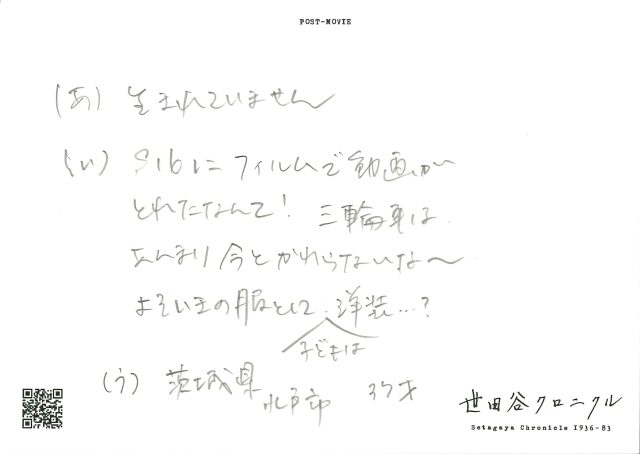 POST-MOVIE
(あ) 生まれていません
(い) S16に フィルムで動画が
とれたなんて! 三輪車は
あんまり今とかわらないな〜
よそいきの服として 洋装…?
子どもは
(う) 茨城県
水戸市 37才
世田谷クロニクル
Setagaya Chronicle 1936-83